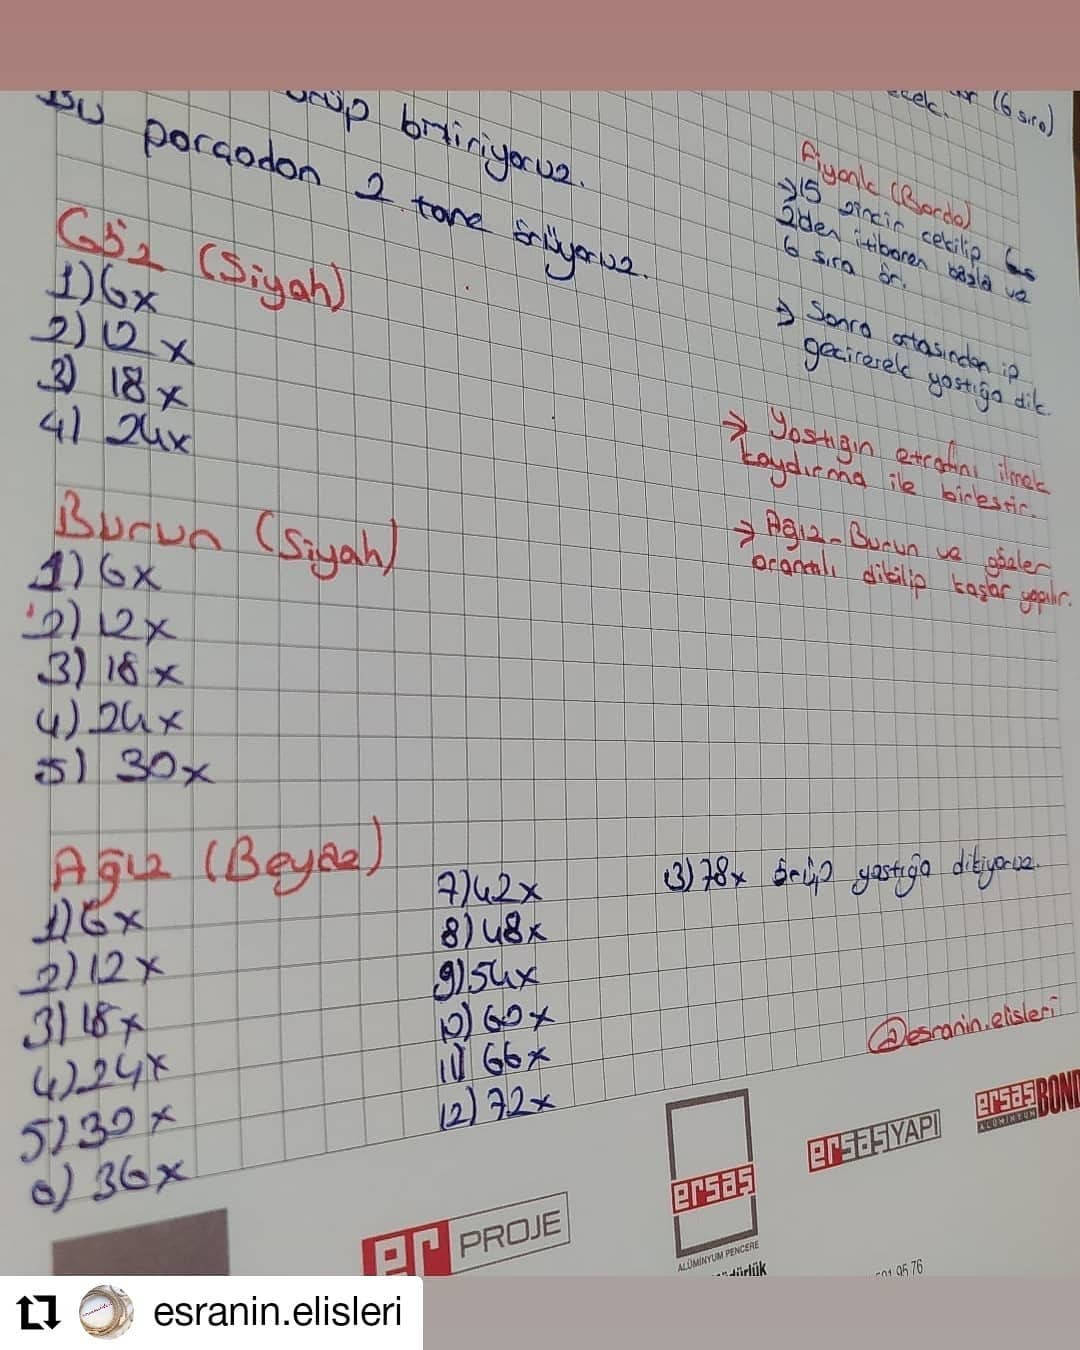 örüp bitiriyoruz.
Bu parçadan 2 tane örüyoruz.
Göz (Siyah)
1) 6x
2) 12x
3) 18x
4) 24x
Burun (Siyah)
1) 6x
2) 12x
3) 18x
4) 24x
5) 30x
Ağız (Beyaz)
1) 6x
2) 12x
3) 18x
4) 24x
5) 30x
6) 36x
7) 42x
8) 48x
9) 54x
10) 60x
11) 66x
12) 72x
13) 78x örüp yastığa dikiyoruz.
(6 sıra)
Fiyonk (Bordo)
→ 15 zincir çekilip
2den itibaren başla ve
6 sıra ör.
→ Sonra ortasından ip
geçirerek yastığa dik.
→ Yastığın etrafını ilmek
kaydırma ile birleştir.
→ Ağız-Burun ve gözler
orantılı dikilip kaşlar yapılır.
@esranin.elisleri
er PROJE
ersaş
ALÜMİNYUM PENCERE
ersaş YAPI
ersaş BOND
ALÜMİNYUM
95 76
esranin.elisleri